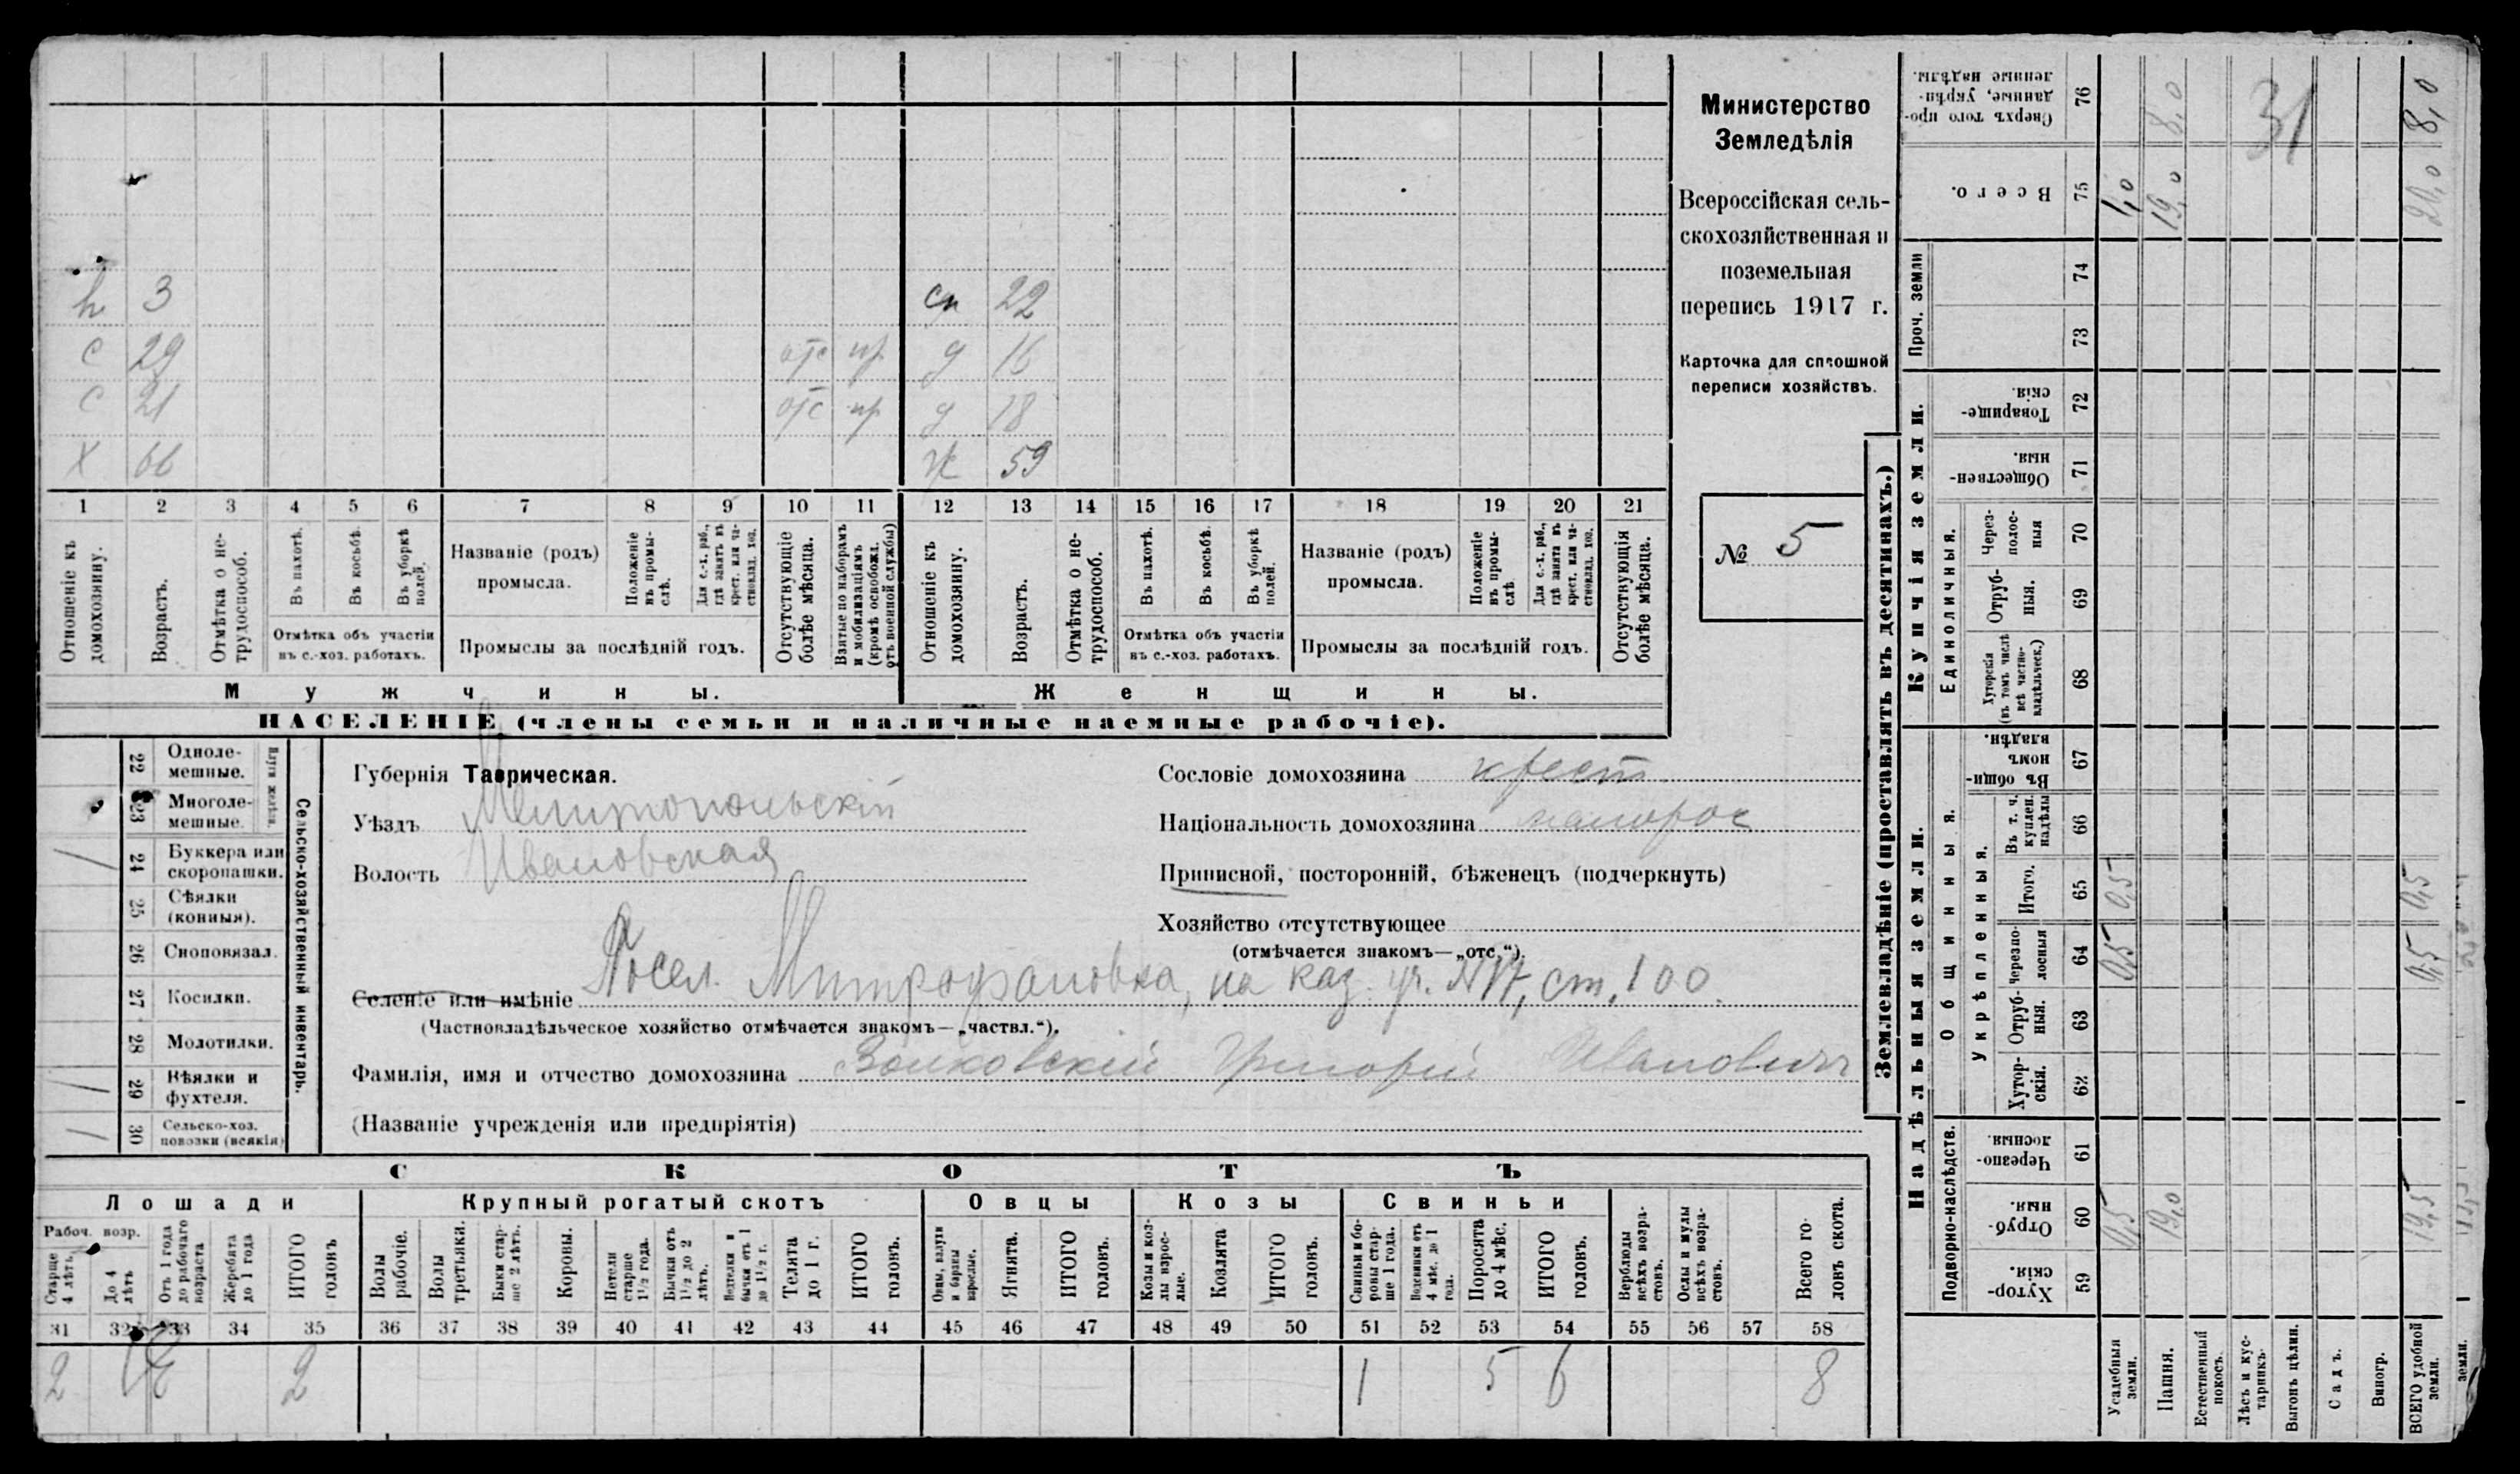 h 3 сн 22
с 29 отс пр д 16
с 21 отс пр д 18
х 66 ж 59
1 2 3 4 5 6 7 8 9 10 11 12 13 14 15 16 17 18 19 20 21
Отношеніе къ домохозяину.
Возрастъ.
Отмѣтка о нетрудоспособ.
Въ пахотѣ.
Въ косьбѣ.
Въ уборкѣ полей.
Отмѣтка объ участіи
въ с.-хоз. работахъ.
Названіе (родъ)
промысла.
Положеніе въ промыслѣ.
Для с.-х. раб., гдѣ занятъ въ крест. или частновлад. хоз.
Промыслы за послѣдній годъ.
Отсутствующіе болѣе мѣсяца.
Взятые по наборамъ и мобилизаціямъ (кромѣ освобожд. отъ военной службы)
Отношеніе къ домохозяину.
Возрастъ.
Отмѣтка о нетрудоспособ.
Въ пахотѣ.
Въ косьбѣ.
Въ уборкѣ полей.
Отмѣтка объ участіи
въ с.-хоз. работахъ.
Названіе (родъ)
промысла.
Положеніе въ промыслѣ.
Для с.-х. раб., гдѣ занята въ крест. или частновлад. хоз.
Промыслы за послѣдній годъ.
Отсутствующія болѣе мѣсяца.
Мужчины.
Женщины.
НАСЕЛЕНІЕ (члены семьи и наличные наемные рабочіе).
Министерство
Земледѣлія
Всероссійская сель-
скохозяйственная и
поземельная
перепись 1917 г.
Карточка для сплошной
переписи хозяйствъ.
№ 5
22 Одноле-
мешные.
23 Многоле-
мешные.
Плуги желѣзн.
24 Буккера или
скоропашки. /
25 Сѣялки
(конныя).
26 Сноповязал.
27 Косилки.
28 Молотилки.
29 Вѣялки и
фухтеля. /
30 Сельско-хоз.
повозки (всякія) /
Сельско-хозяйственный инвентарь.
Губернія Таврическая.
Уѣздъ Мелитопольскій
Волость Ивановская
Сословіе домохозяина крест
Національность домохозяина малорос
Приписной, посторонній, бѣженецъ (подчеркнуть)
Хозяйство отсутствующее
(отмѣчается знакомъ—„отс.“).
Селеніе или имѣніе Посел. Митрофановка, на каз. уч. ст. 100.
(Частновладѣльческое хозяйство отмѣчается знакомъ—„частвл.“).
Фамилія, имя и отчество домохозяина Григорій Ивановичъ
(Названіе учрежденія или предпріятія)
СКОТЪ
Лошади
Крупный рогатый скотъ
Овцы
Козы
Свиньи
Рабоч. возр.
Старше 4 лѣтъ.
До 4 лѣтъ
Отъ 1 года до рабочаго возраста
Жеребята до 1 года
ИТОГО головъ
Волы рабочіе.
Волы третьяки.
Быки старше 2 лѣтъ.
Коровы.
Нетели старше 1½ года.
Бычки отъ 1½ до 2 лѣтъ.
Подтелки и бычки отъ 1 до 1½ г.
Телята до 1 г.
ИТОГО головъ.
Овцы, валухи и бараны взрослые.
Ягнята.
ИТОГО головъ.
Козы и козлы взрослые.
Козлята
ИТОГО головъ.
Свиньи и боровы старше 1 года.
Подсвинки отъ 4 мѣс. до 1 года.
Поросята до 4 мѣс.
ИТОГО головъ.
Верблюды всѣхъ возрастовъ.
Ослы и мулы всѣхъ возрастовъ.
Всего головъ скота.
31 32 33 34 35 36 37 38 39 40 41 42 43 44 45 46 47 48 49 50 51 52 53 54 55 56 57 58
2 2 1 5 6 8
Землевладѣніе (проставлять въ десятинахъ.)
Купчія земли.
Надѣльныя земли.
Сверхъ того проданные, укрѣпленные надѣлы. 76 8,0 31 8,0
Всего. 75 1,0 19,0 20,0
Проч. земли
74
73
Товарищескія. 72
Общественныя. 71
Единоличныя.
Черезполосныя 70
Отрубныя. 69
Хуторскія (въ томъ числѣ всѣ частновладѣльческ.) 68
Общинныя.
Въ общинномъ владѣн. 67
Укрѣпленныя.
Въ т. ч. куплен. надѣлы 66
Итого. 65 0,5 0,5
Черезполосныя 64 0,5 0,5
Отрубныя. 63
Хуторскія. 62
Подворно-наслѣдств.
Черезполосныя. 61
Отрубныя. 60 0,5 19,0 19,5
Хуторскія. 59
Усадебныя земли.
Пашня.
Естественный покосъ.
Лѣсъ и кустарникъ.
Выгонъ цѣлин.
Садъ.
Виногр.
ВСЕГО удобной земли.
земли.